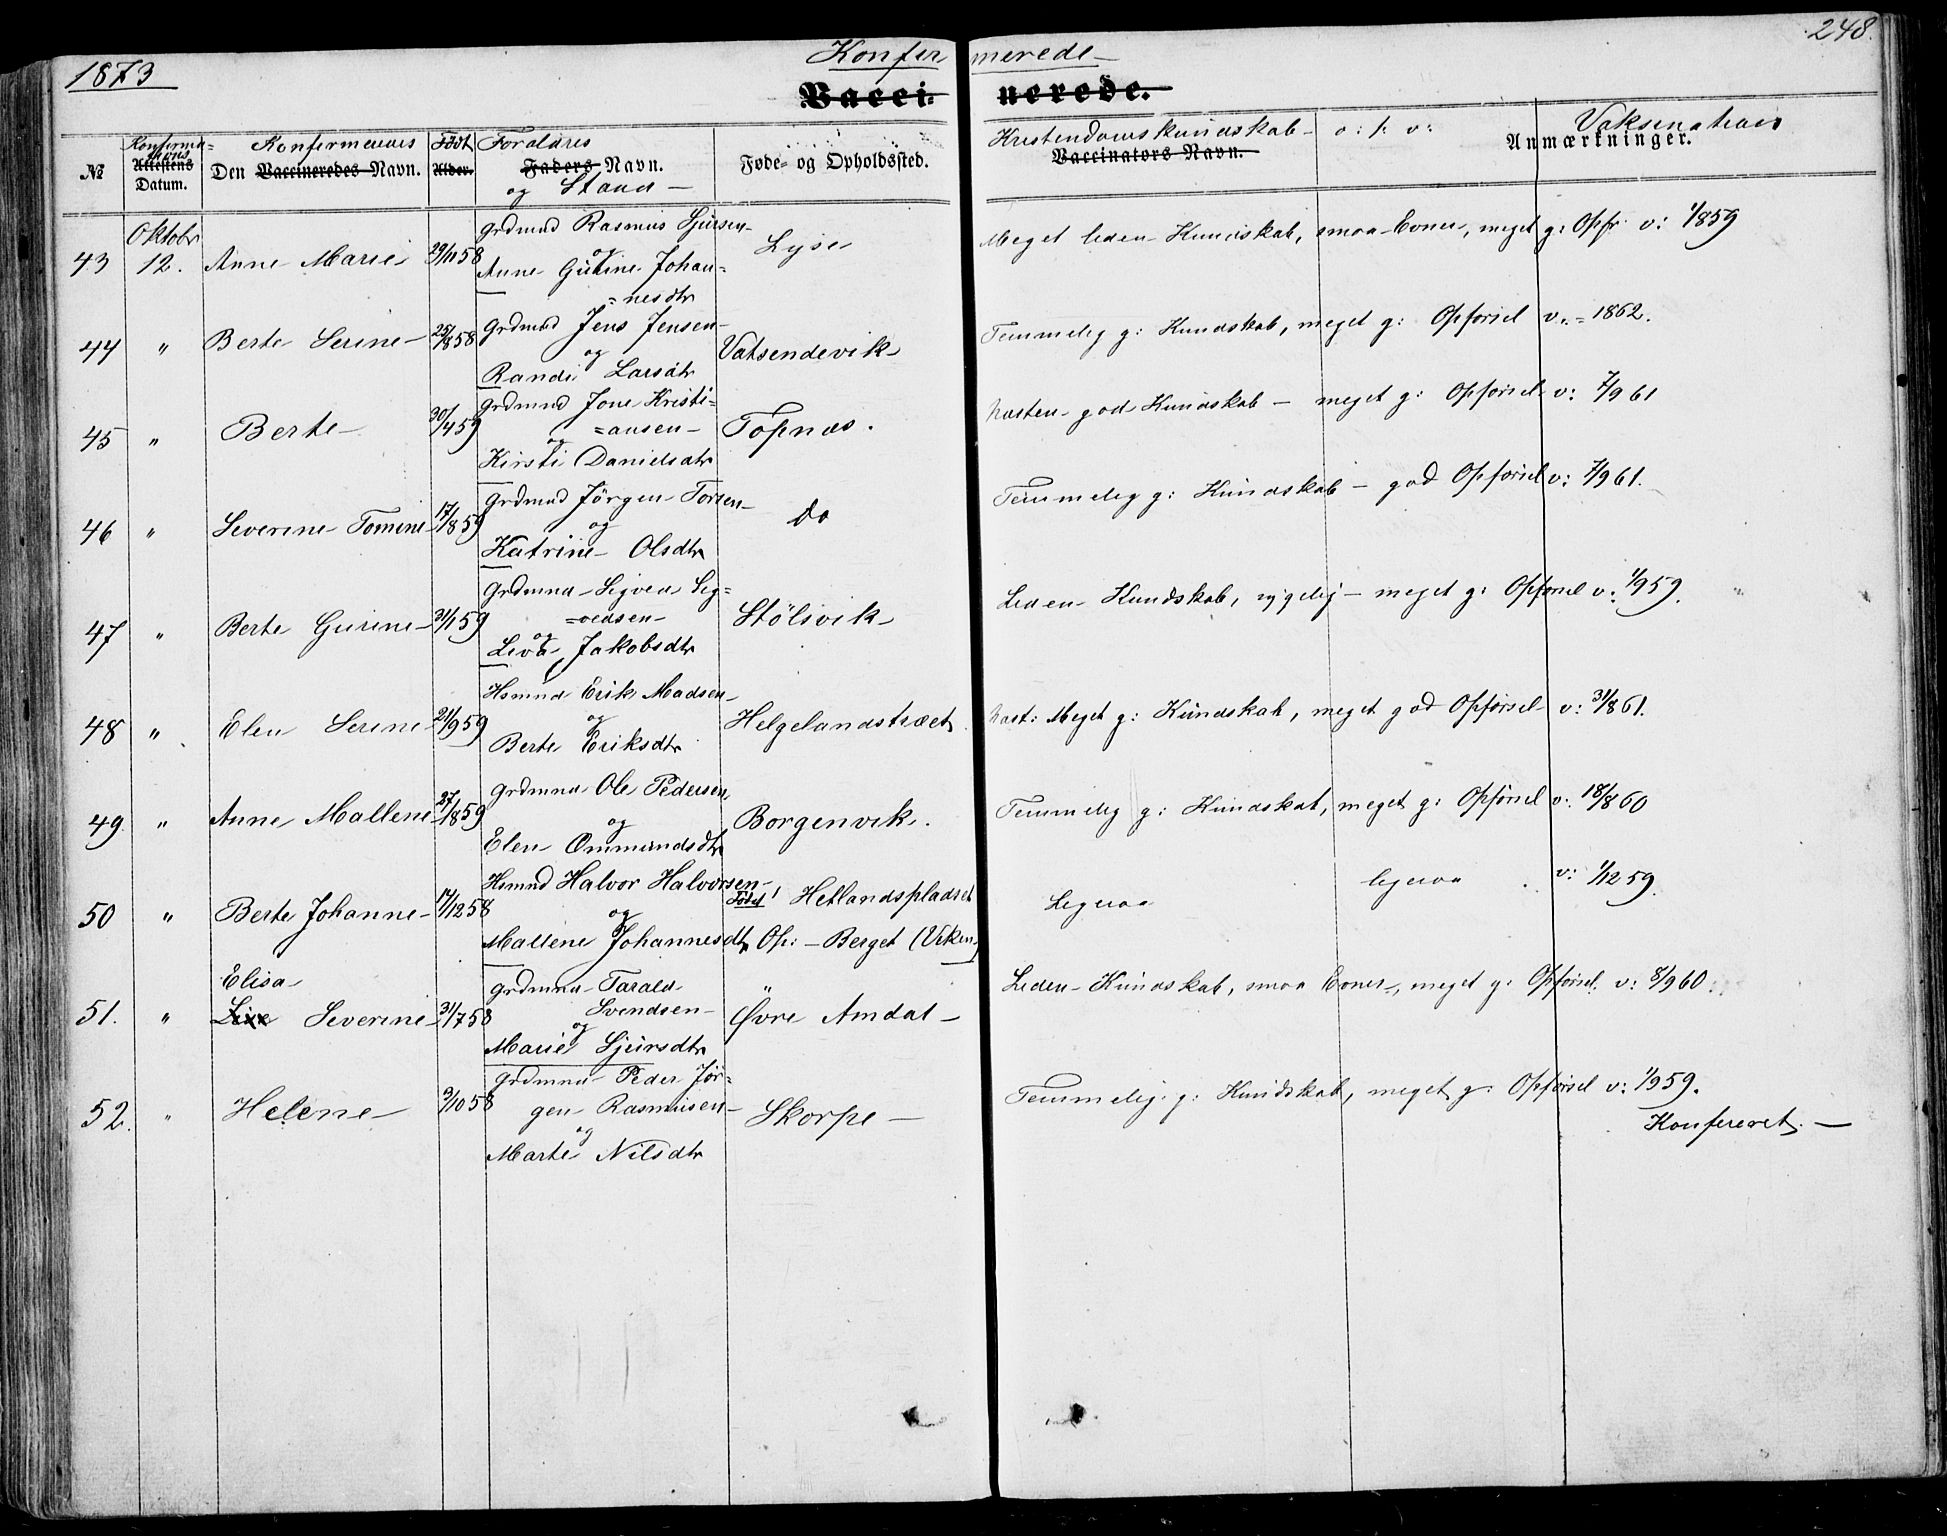 1873
Konfermerede
248.
Vaccinerede.
№
Konfirmations
Attestens
Datum.
Konfermerees
Den Vaccineredes Navn.
Født
Alder.
Foraldres
Faders Navn.
og Stand
Føde- og Opholdssted.
Kristendomskundskab o: s: v:
Vaccinators Navn.
Vaksenation
Anmærkninger.
43 Oktobr 12. Anne Marie 29/11 58 Grdmnd Rasmus Sjursen og Anne Gurine Johannesdtr Lyse Meget liden Kundskab, smaa Evner, meget g: Opfr v: 1/859
44 " Berte Serine 25/8 58 Grdmnd Jens Jensen og Randi Larsdtr Vatsendevik Temmelig g: Kundskab, meget g: Opførsel v: 1862.
45 " Berte 30/4 59 Grdmnd Jone Kristiansen og Kirsti Danielsdtr Topnæs. Næsten god Kundskab meget g: Opførsel v: 7/9 61
46 " Severine Tomine 17/8 59 Grdmnd Jörgen Torsen og Katrine Olsdtr Do Temmelig g: Kundskab god Opførsel v: 7/9 61.
47 " Berte Gurine 31/1 59 Grdmnd Sigved Sigvedsen og Siva Jakobsdtr Stölsvik Liden Kundskab, sygelig meget g: Opførsel v: 1/9 59.
48 " Elen Serine 21/9 59 Hsmnd Erik Madsen og Berte Eriksdtr Helgelandstræet Næst: Meget g: Kundskab, meget god Opførsel v: 31/8 61.
49 " Anne Mallene 27/8 59 Grdmnd Ole Pedersen og Elen Ommundsdtr Borgenvik. Temmelig g: Kundskab, meget g: Opførsel v: 18/8 60
50 " Berte Johanne 17/12 58 Hsmnd Halvor Halvorsen og Mallene Johannesdtr Födt Hetlandspladset Op: Berget (Viken) Ligesaa ligesaa v: 1/12 59.
51. " Elisa Severine 31/7 58 Grdmnd Tarald Svendsen og Marie Sjursdtr Øvre Amdal Liden Kundskab, smaa Evner, meget g: Opførsel v: 8/9 60
52. " Helene 9/10 58 Grdmnd Peder Jörgen Rasmusen og Marte Nilsdtr Skorpe Temmelig g: Kundskab, meget g: Opførsel v: 1/9 59.
Konfereret.